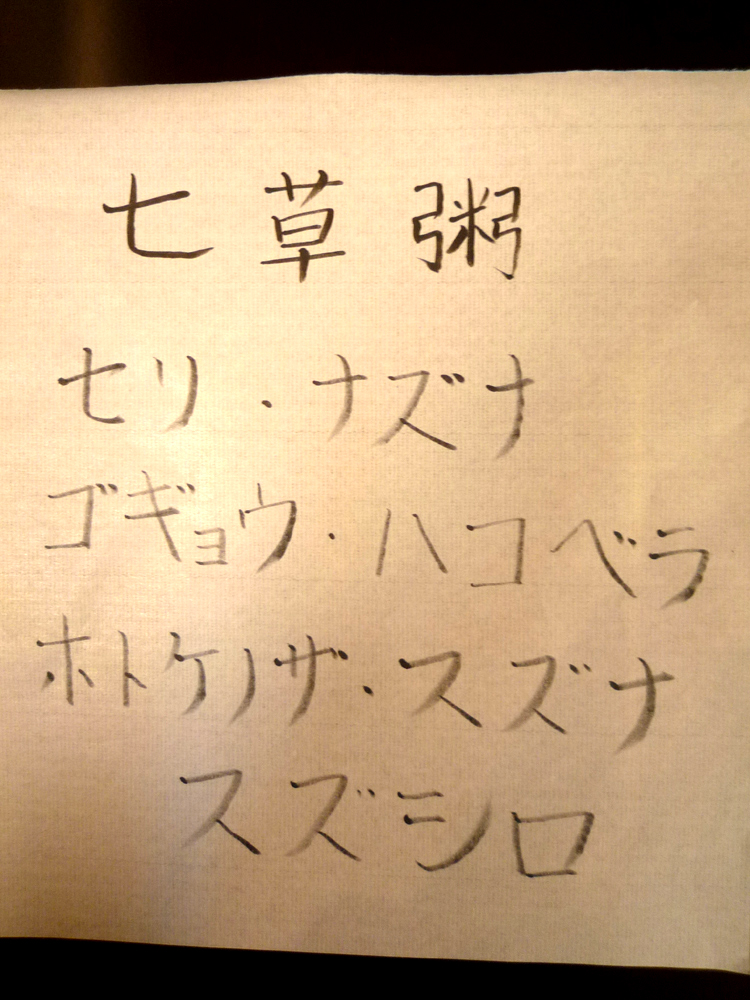 七草粥
セリ・ナズナ
ゴギョウ・ハコベラ
ホトケノザ・スズナ
スズシロ